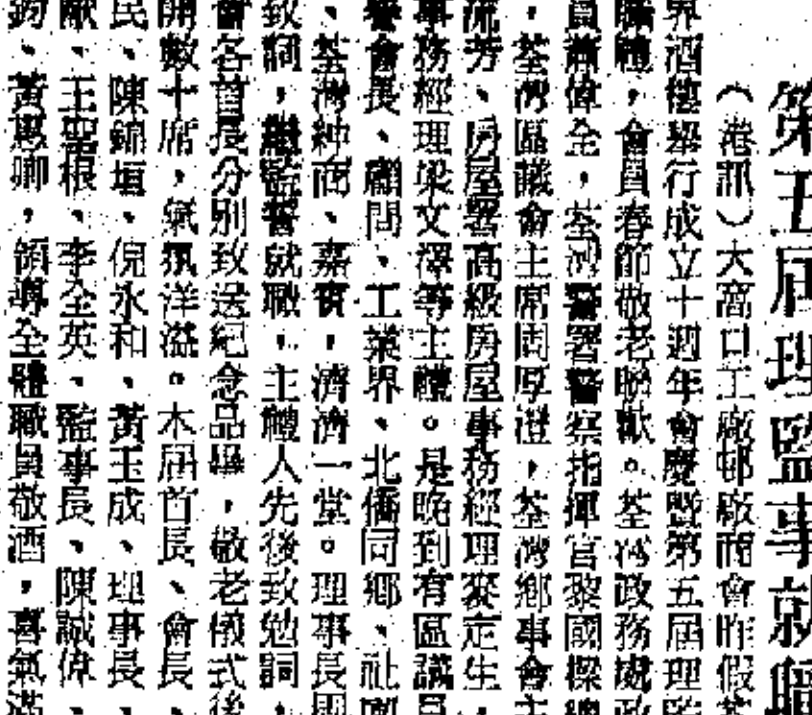 第五屆理監事就職
（港訊）大窩口工廠邨廠商會昨假荃
界酒樓舉行成立十週年會慶暨第五屆理監
職體，會員春節敬老聯歡。荃灣政務處政
員蕭偉全，荃灣警署警察指揮官黎國樑總
，荃灣區議會主席周厚澄，荃灣鄉事會主
流芳、房屋署高級房屋事務經理麥定生，
事務經理梁文澤等主禮。是晚到有區議員
譽會長、顧問、工業界、北僑同鄉、社團
、荃灣紳商、嘉賓，濟濟一堂。理事長
致詞，繼監誓就職。主禮人先後致勉詞，
會各首長分別致送紀念品畢，敬老儀式後
開數十席，氣氛洋溢。本屆首長、會長、
民、陳錦垣、倪永和、黃玉成、理事長、
獻、王聖根、李全英、監事長、陳誠偉、
鈞、黃惠卿，領導全體職員敬酒，喜氣滿